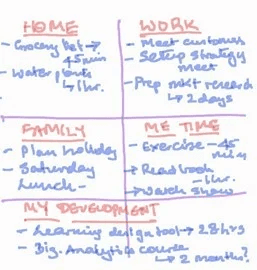 HOME
- Grocery list →
45 min
- Water plants
↳ 1hr.
WORK
- Meet customers
- Setup strategy
meet
- Prep mkt research
↳ 2 days
FAMILY
- Plan holiday
- Saturday
Lunch -
ME TIME
- Exercise - 45
mins
→ Read book
- 1hr.
→ Watch show
MY DEVELOPMENT
- Learning design tool → 28 hrs
- Dig. Analytics course
↳ 2 months?